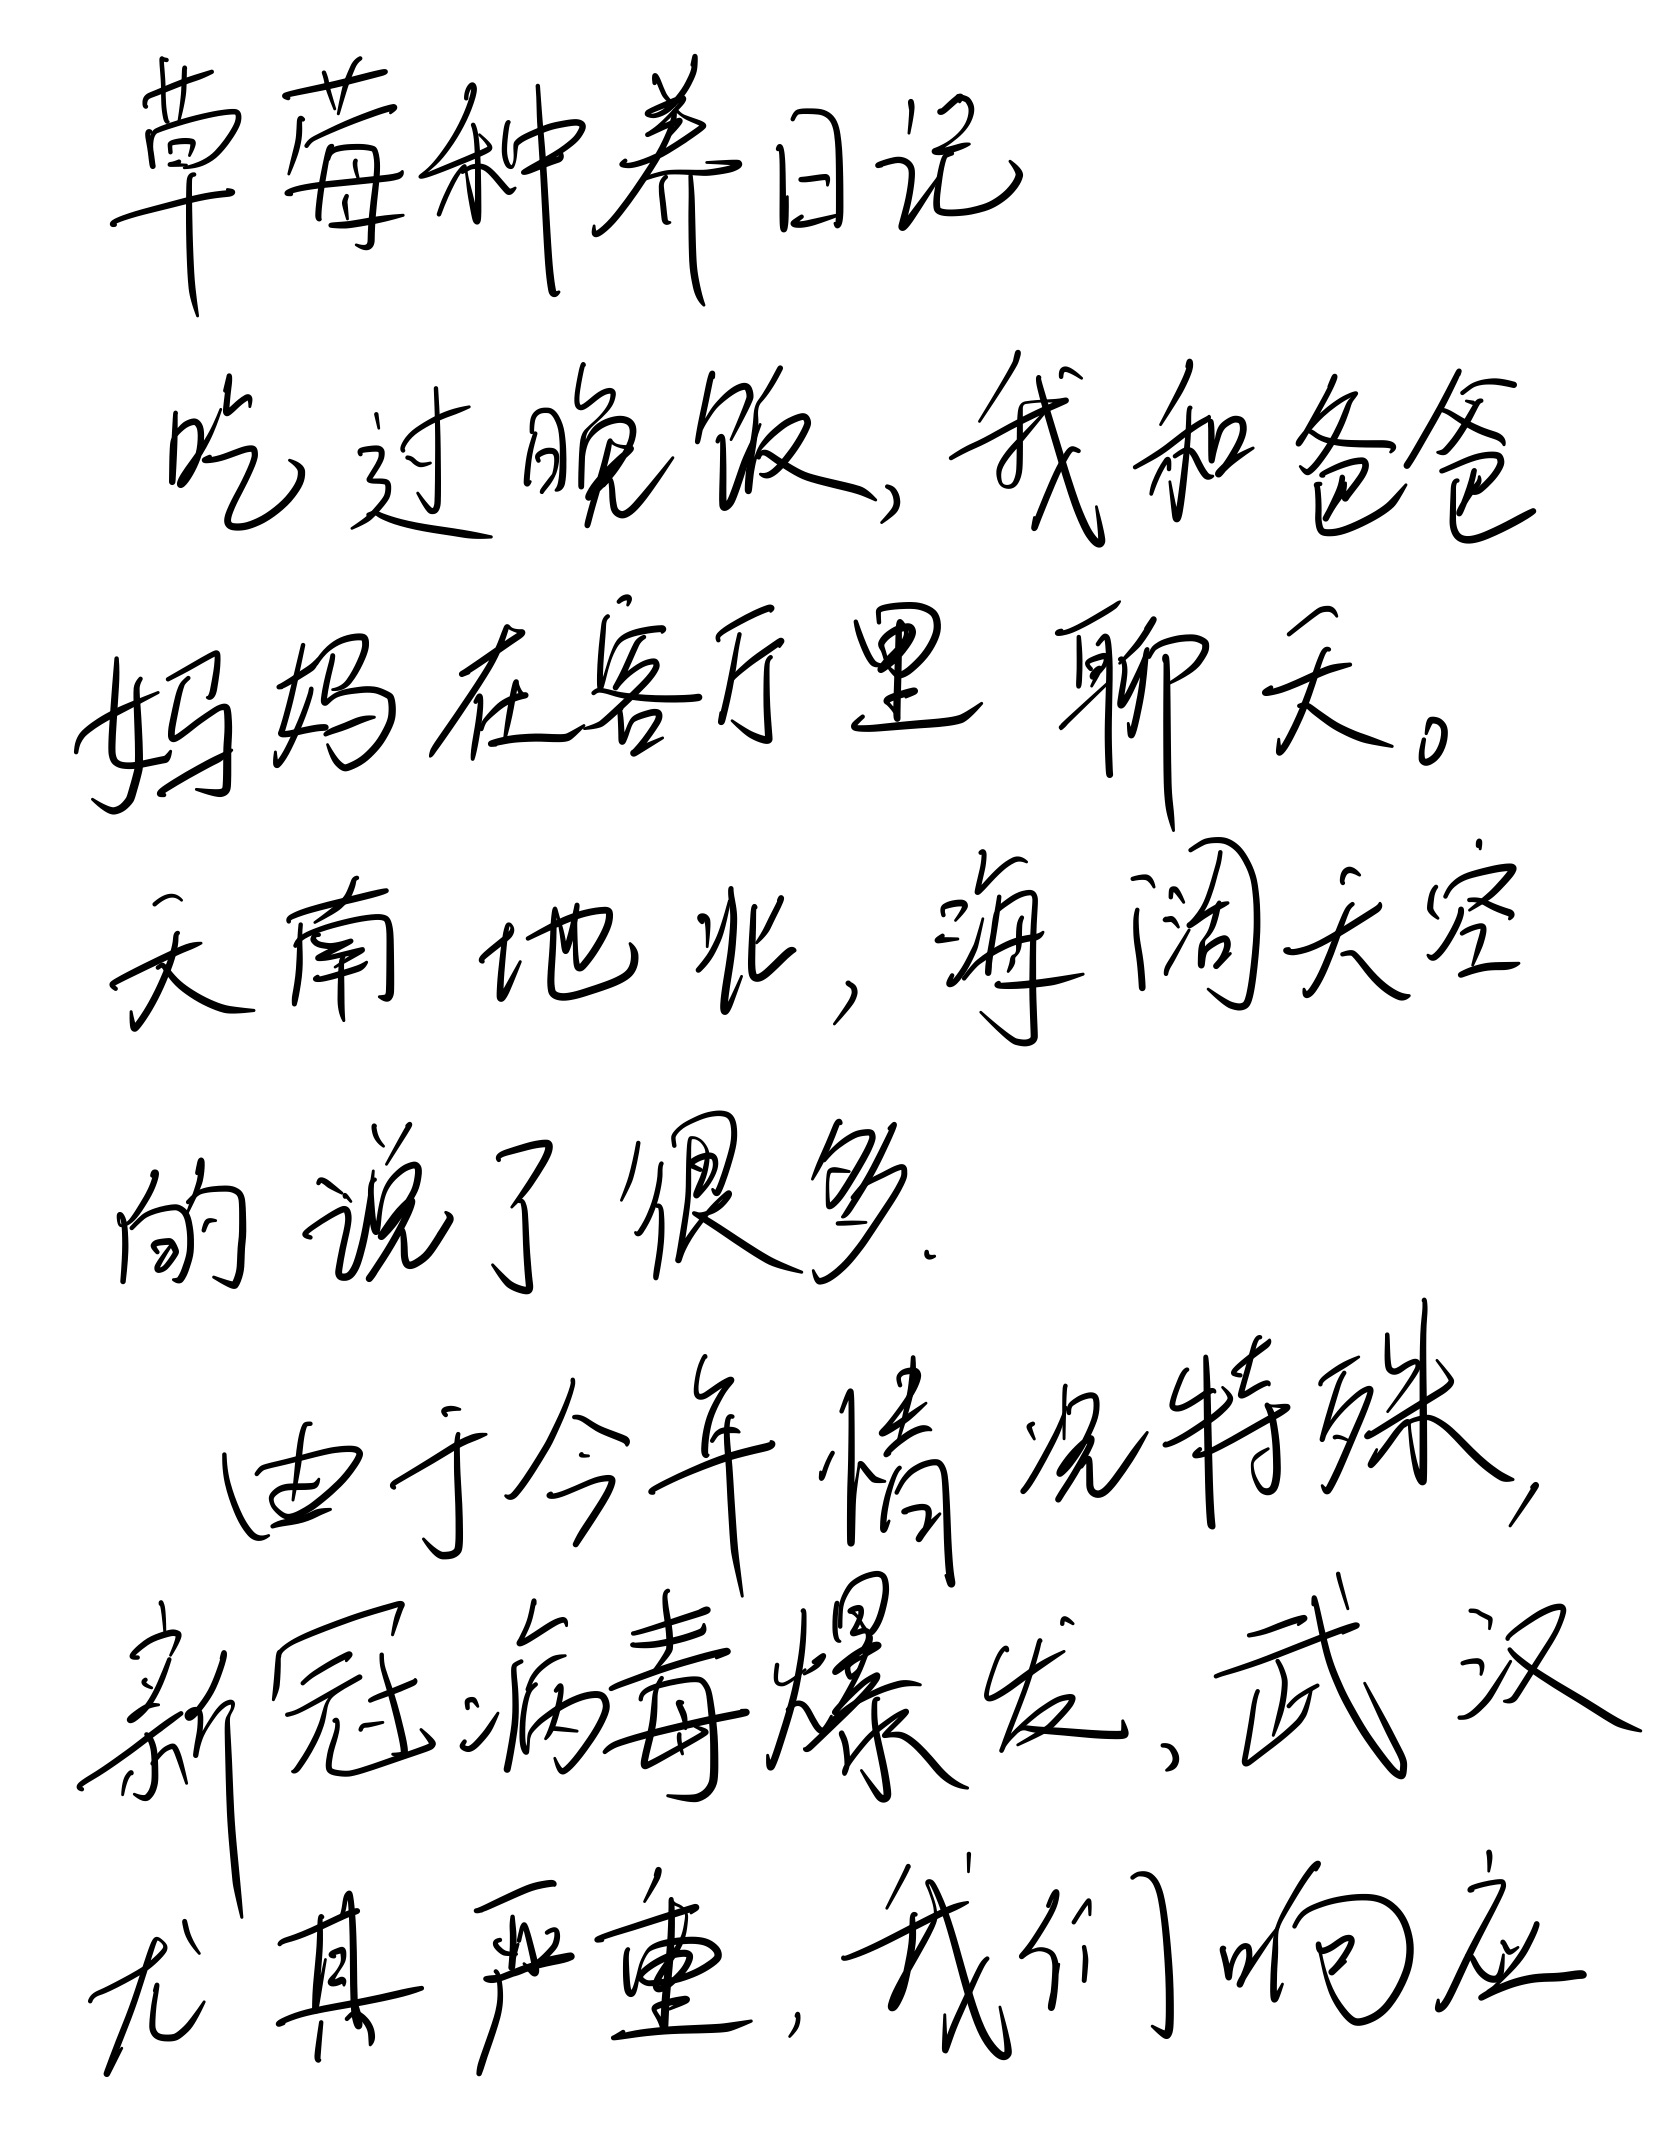 草莓种养日记
吃过晚饭，我和爸爸
妈妈在客厅里聊天。
天南地北，海阔天空
的说了很多.
由于今年情况特殊，
新冠病毒爆发，武汉
尤其严重，我们响应